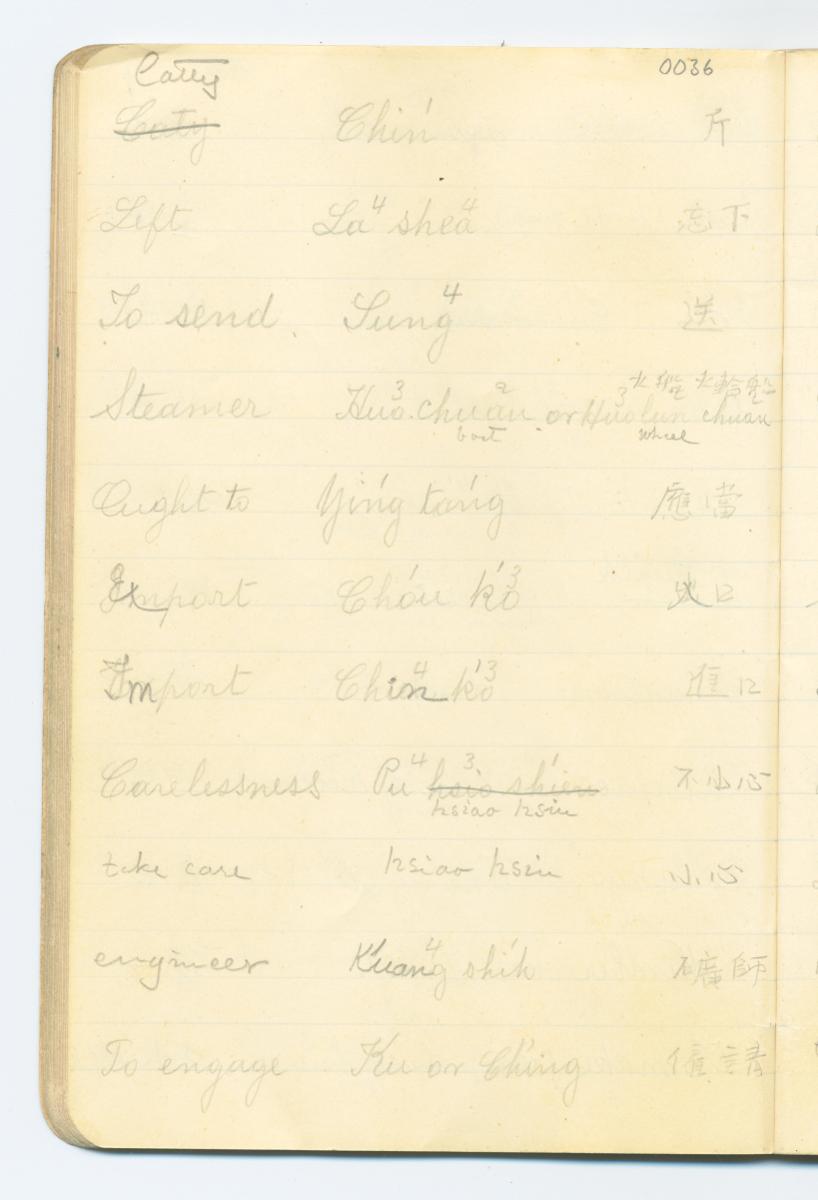 0036
Catty
Caty Chin' 斤
Left La⁴ shea⁴ 忘下
To send Sung⁴ 送
火船 火輪船
Steamer Huo³. chuan² or Huo³lun chuan
boat wheel
Ought to Ying' tang' 應當
Export Ch'ou k'o³ 出口
Import Chin⁴ k'o³ 進口
Carelessness Pu⁴ hsio³ shien 不小心
hsiao hsin
take care hsiao hsin 小心
engineer K'uang⁴ shih 礦師
To engage Ku or Ch'ing 僱 請